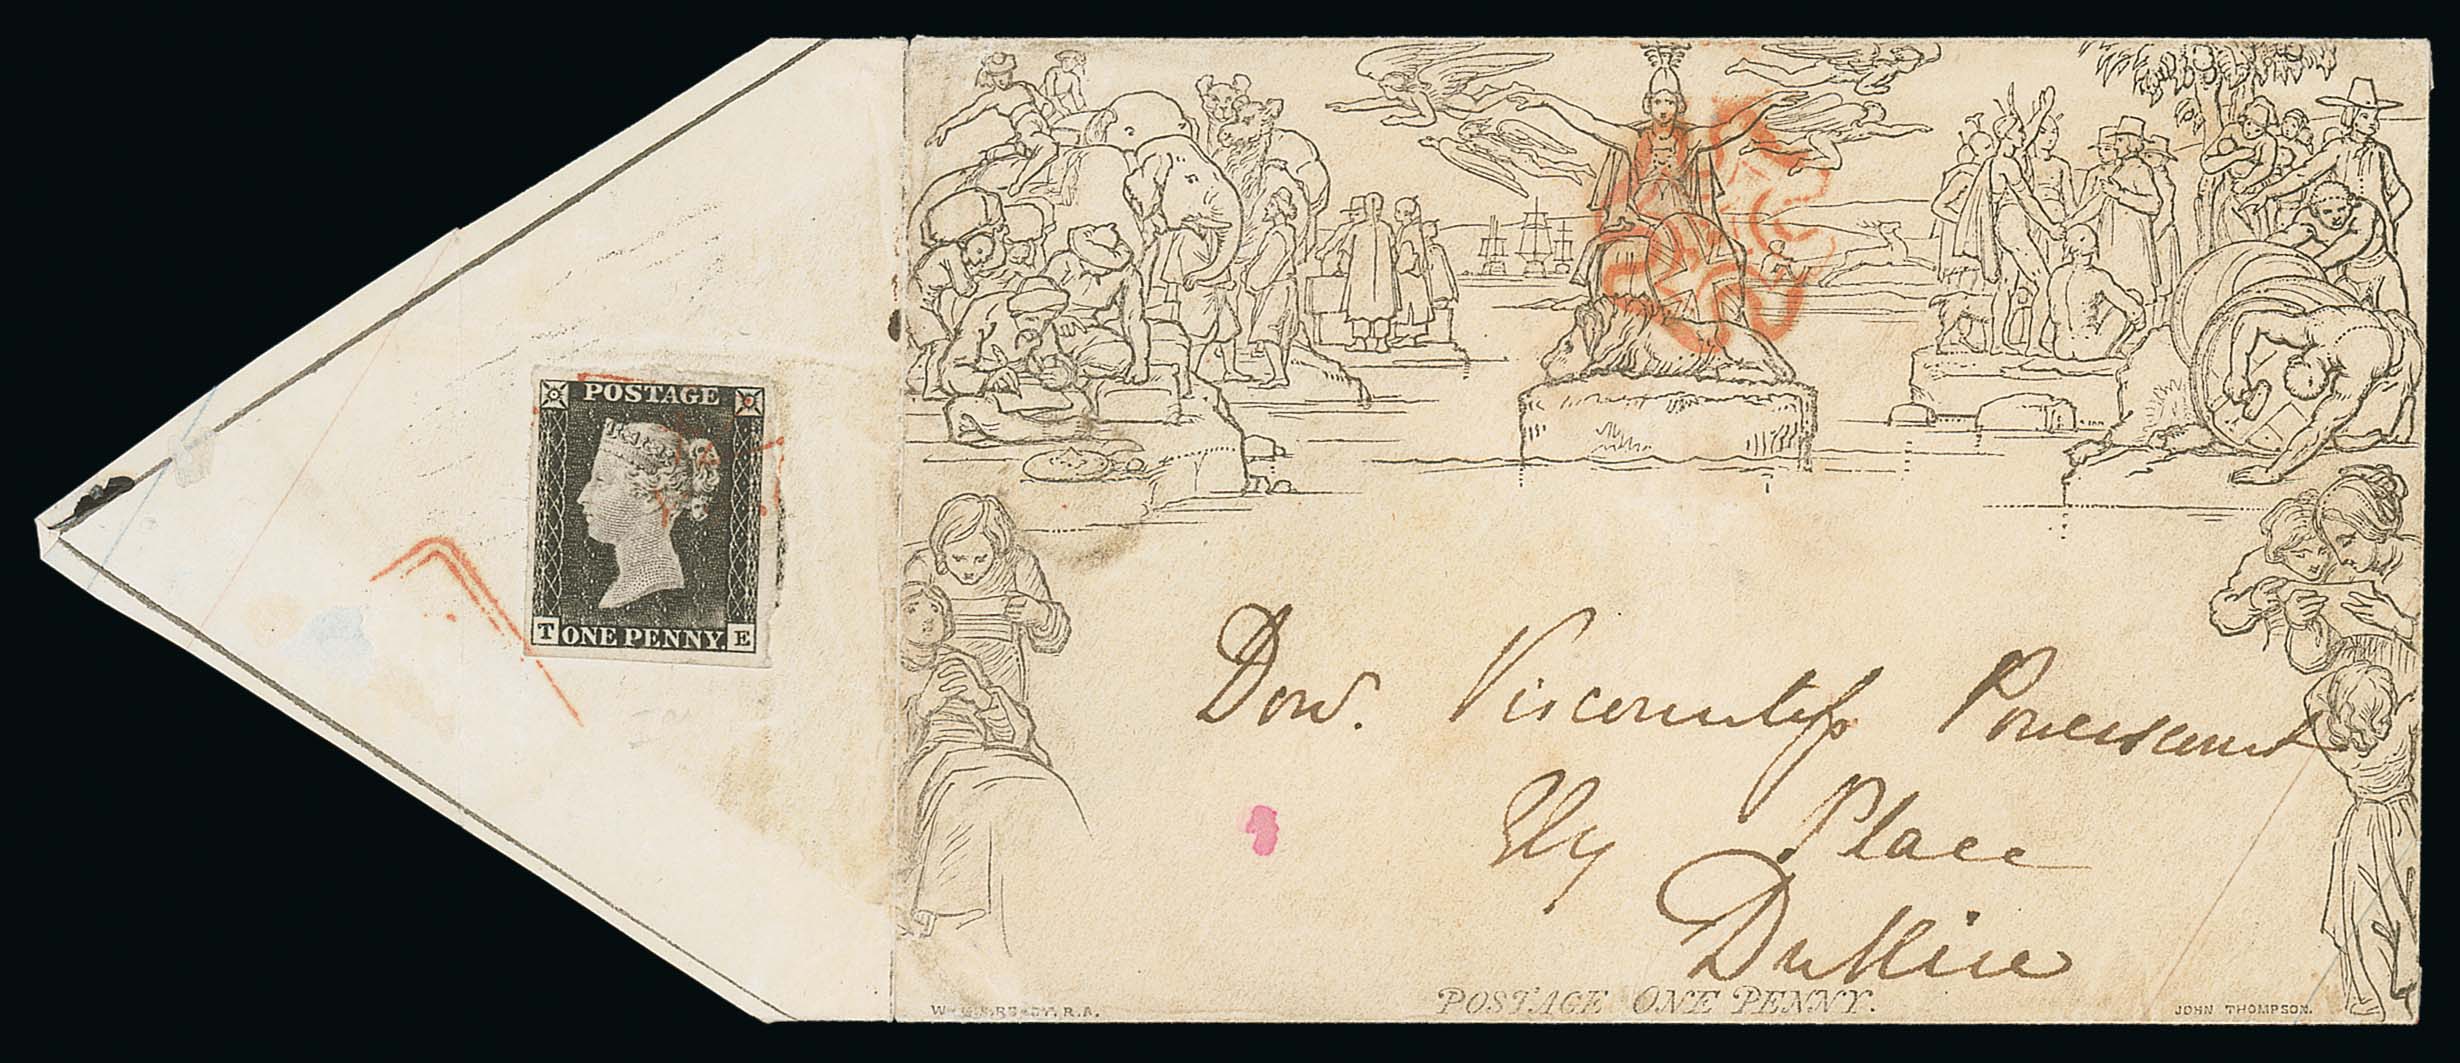 POSTAGE
T ONE PENNY. E
Dow. Viscountess Powerscourt
Ely Place
Dublin
POSTAGE ONE PENNY.
W. MULREADY. R.A.
JOHN THOMPSON.